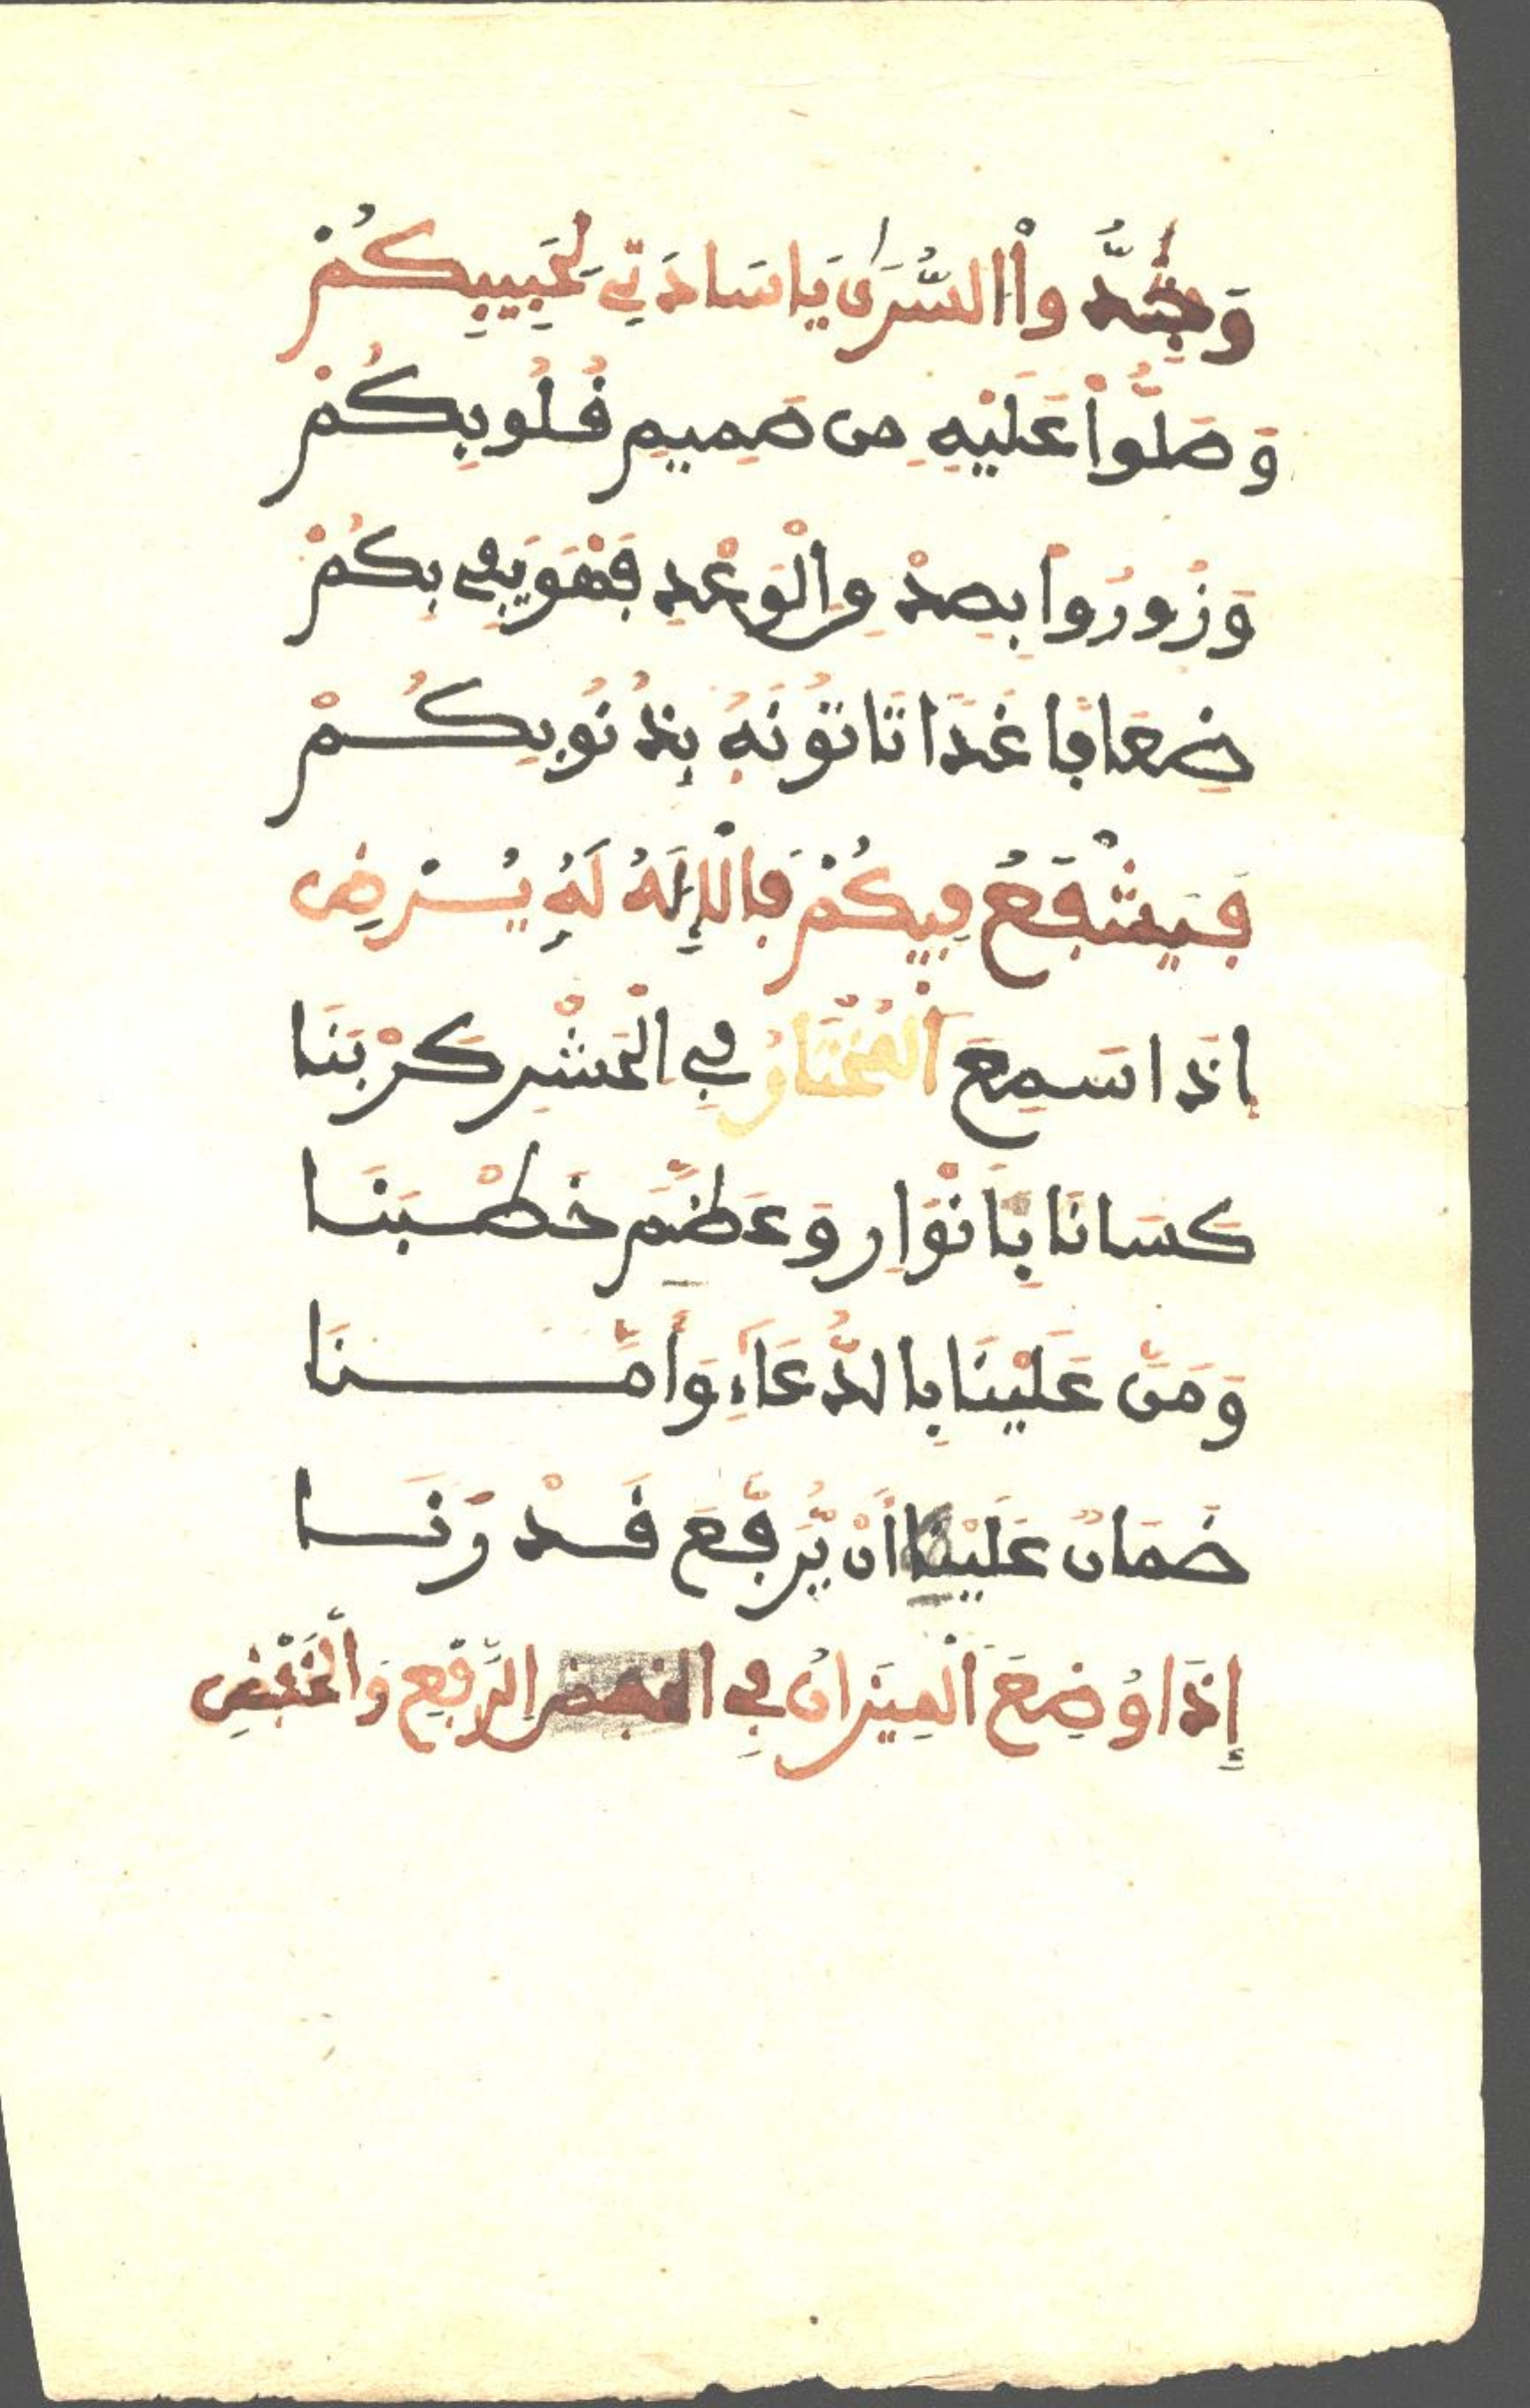 وَجِدُّواْ السُّرَىٰ يَا سَادَتِي لِحَبِيبِكُمْ
وَصَلُّواْ عَلَيْهِ مِن صَمِيمِ قُلُوبِكُمْ
وَزُورُوا بِصِدْقِ الْوَعْدِ فَهْوَ يَفِي بِكُمْ
ضِعَافًا غَدًا تَاتُونَهُ بِذُنُوبِكُمْ
فَيَشْفَعُ فِيكُمْ فَالْإِلَهُ لَهُ يُرْضِ
إِذَا سَمِعَ الْمُخْتَارُ فِي الْحَشْرِ كَرْبَنَا
كَسَانَا بِأَنْوَارٍ وَعَظَّمَ خَطْبَنَا
وَمَنَّ عَلَيْنَا بِالدُّعَاءِ وَأَمَّنَا
ضَمَانٌ عَلَيْنَا أَنْ يُّرَفِّعَ قَدْرَنَا
إِذَا وُضِعَ الْمِيزَانُ فِي الرَّفْعِ وَالْخَفْضِ